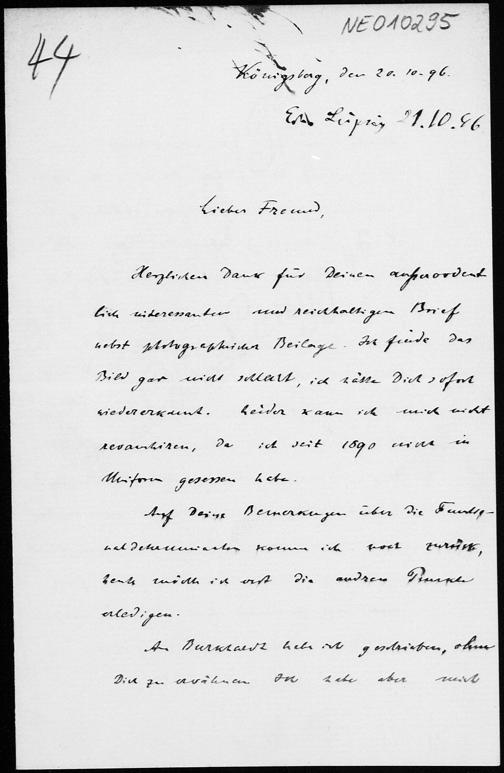 44
NE010295
Königsberg, den 20.10.96.
Leipzig 21.10.96
Lieber Freund,
Herzlichen Dank für Deinen ausserordent
lich interessanten und reichhaltigen Brief
nebst photographischer Beilage. Ich finde das
Bild gar nicht schlecht, ich hätte Dich sofort
wiedererkannt. Leider kann ich mich nicht
revanchiren, da ich seit 1890 nicht in
Uniform gesessen habe.
Auf Deine Bemerkungen über die
komm ich noch zurück,
heute möcht ich erst die andren Punkte
erledigen.
An Burkhardt hab ich geschrieben, ohne
Dich zu erwähnen Ich habe aber mich